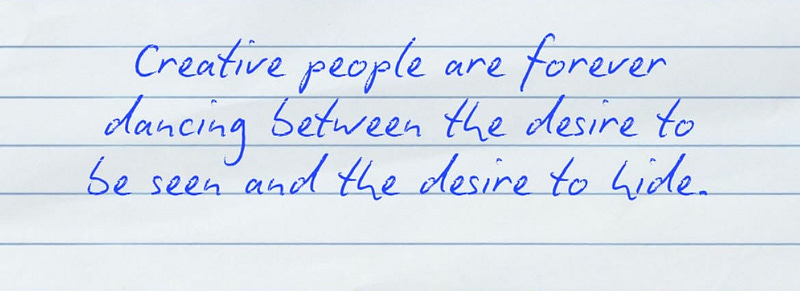 Creative people are forever
dancing between the desire to
be seen and the desire to hide.